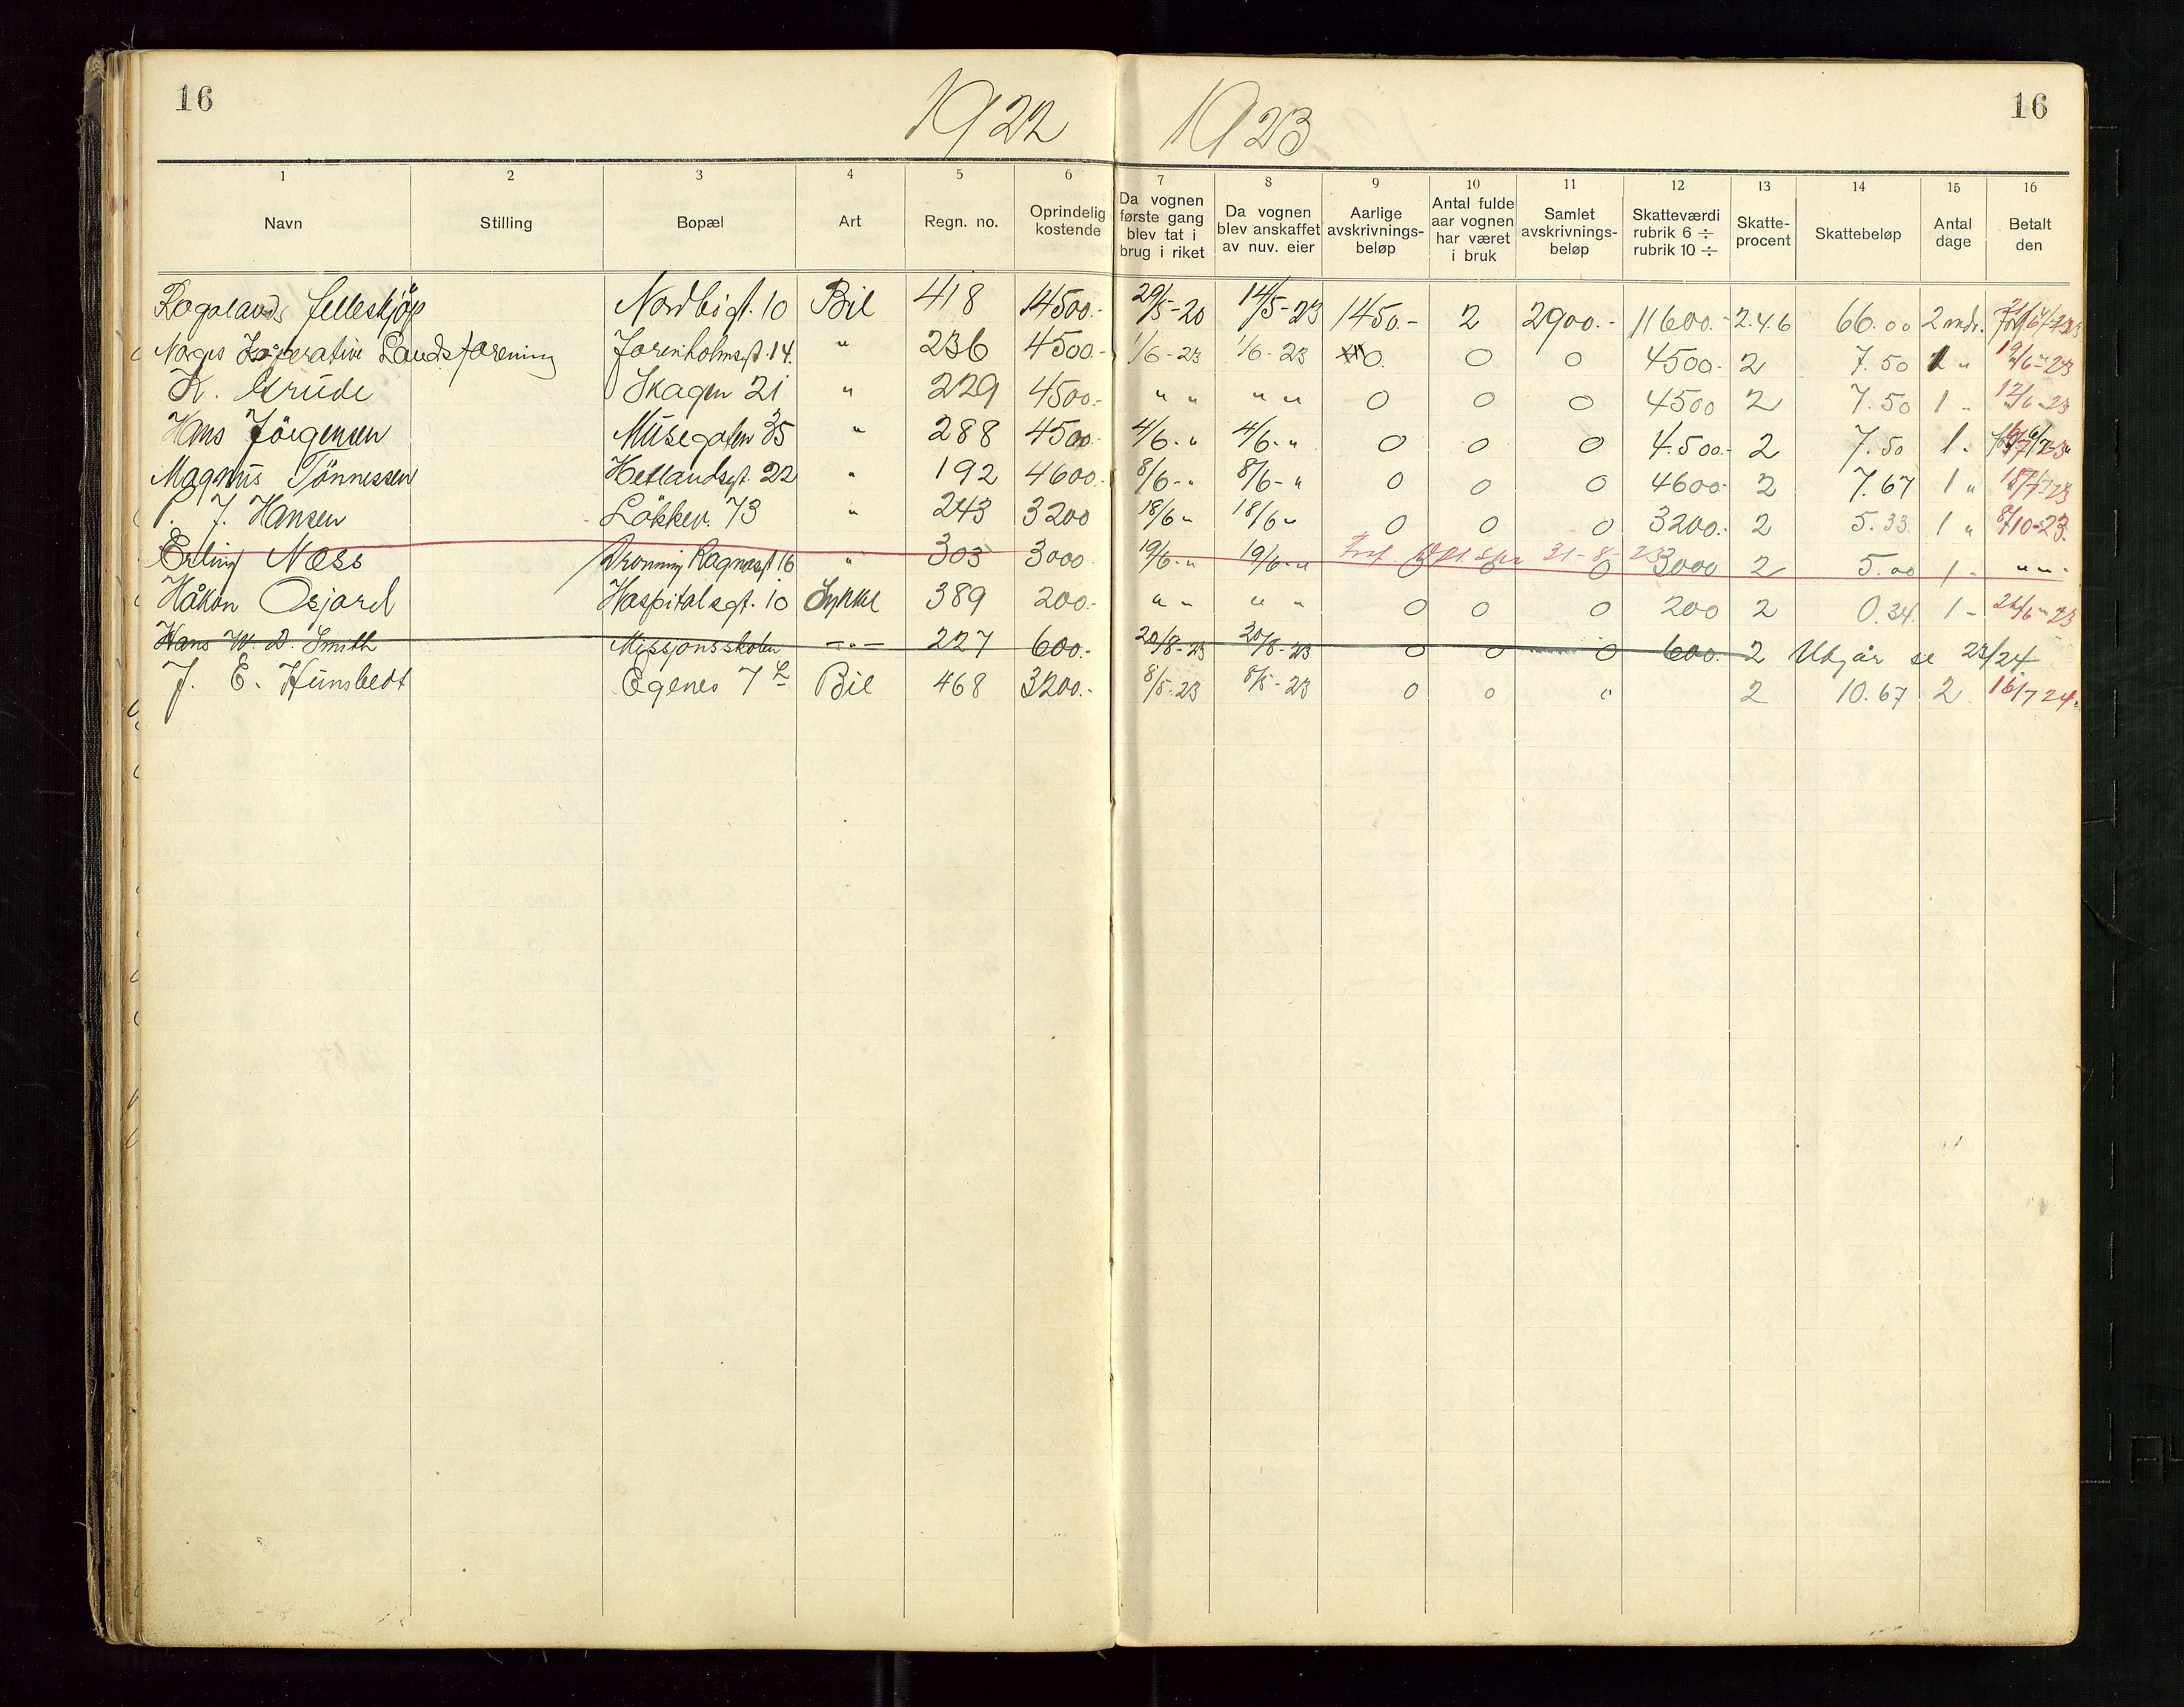 16 1922 1923 16
1 2 3 4 5 6 7 8 9 10 11 12 13 14 15 16
Navn Stilling Bopæl Art Regn. no. Oprindelig kostende Da vognen første gang blev tat i brug i riket Da vognen blev anskaffet av nuv. eier Aarlige avskrivnings-beløp Antal fulde aar vognen har været i bruk Samlet avskrivnings-beløp Skatteværdi rubrik 6 ÷ rubrik 10 ÷ Skatte-procent Skattebeløp Antal dage Betalt den
Rogalands felleskjöp Nordbögt. 10 Bil 418 14500.- 29/5-20 14/5-23 1450.- 2 2900.- 11600.- 2.4.6 66.00 2 mdr.
Norges Koperative Landsforening Jorenholmsgt. 14. " 236 4500.- 1/6-23 1/6-23 0. 0 0 4500.- 2 7.50 1 " 19/6-23
K. Grude Skagen 21 " 229 4500.- " " " " 0 0 0 4500 2 7.50 1 " 12/6-23
Hans Jörgensen Musegaten 35 " 288 4500 4/6-" 4/6-" 0 0 0 4.500.- 2 7.50 1 "
Magnus Tönnessen Hetlandsgt. 22 " 192 4600.- 8/6-" 8/6-" 0 0 0 4600.- 2 7.67 1 " 18/7-23
P. J. Hansen Lökkev. 73 " 243 3200 18/6 " 18/6 " 0 0 0 3200.- 2 5.33 1 " 8/10-23.
Erling Næss Dronning Ragnasgt 16 " 303 3000 19/6-" 19/6-" 31-8-23 0 0 0 3000 2 5.00 1 - " " -
Håkon Osjord Hospitalsgt. 10 Sykkel 389 200.- " " " " 0 0 0 200 2 0.34 1 - 26/6-23
Hans W. D. Smith Missjonsskolen -"- 227 600.- 20/8-23 20/8-23 0 0 0 600. 2 Utgår se 23/24
J. E. Hunsbedt Egenes 7 L Bil 468 3200.- 8/5-23 8/5-23 0 0 0 2 10.67 2 16/7 24.